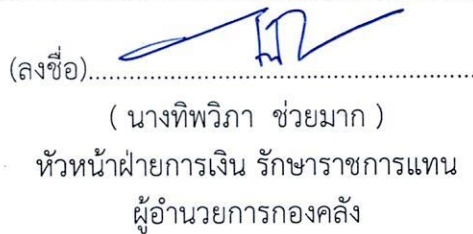 (ลงชื่อ)......................................................
( นางทิพวิภา ช่วยมาก )
หัวหน้าฝ่ายการเงิน รักษาราชการแทน
ผู้อำนวยการกองคลัง